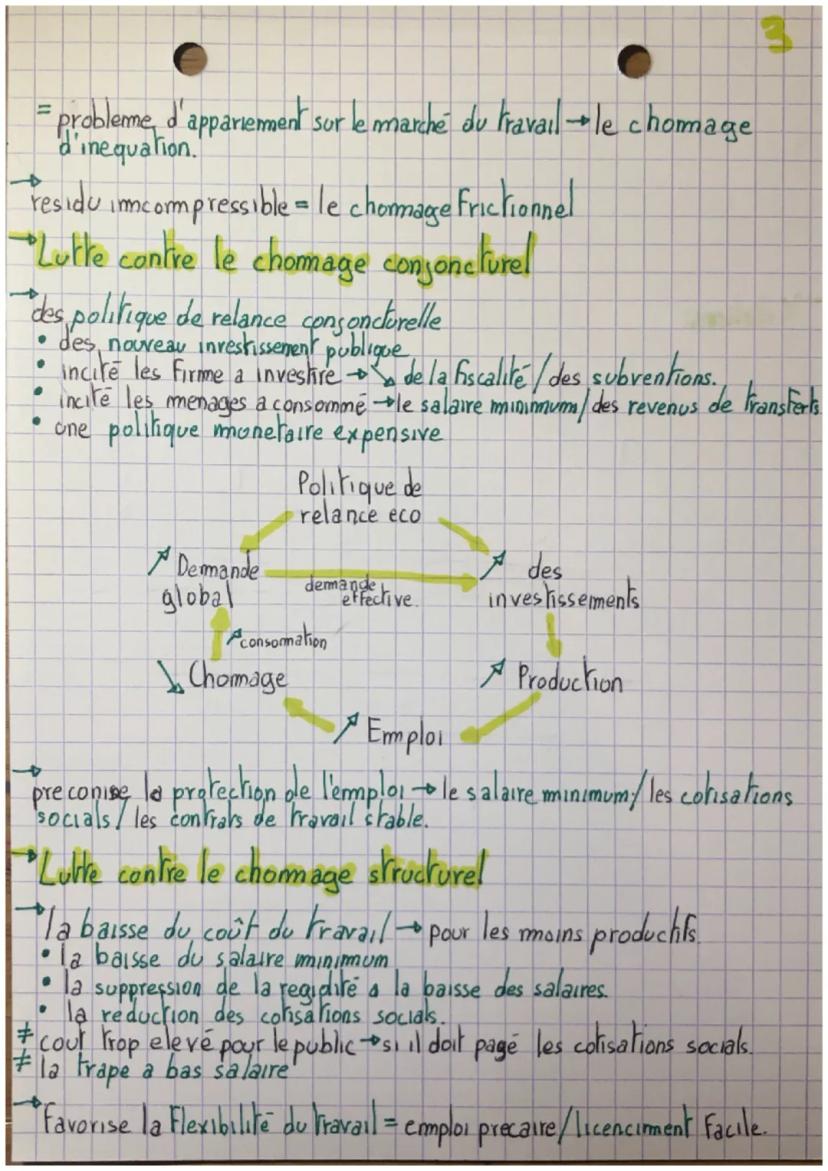 3
= probleme d'appariement sur le marché du travail → le chomage
d'inequation.
→ residu imcompressible = le chomage Frictionnel
→ Lutte contre le chomage conjoncturel
→ des politique de relance conjoncturelle
• des nouveau investissement publique
• incité les firme a investire → ↘ de la fiscalité / des subventions.
• incité les menages a consommé → le salaire minimum / des revenus de transferts.
• une politique monetaire expensive
Politique de
relance eco
↗ Demande
global
demande
effective.
↗ des
investissements
↗ consommation
↘ Chomage
↗ Production
↗ Emploi
→ preconise la protection de l'emploi → le salaire minimum / les cotisations
socials / les contrats de travail stable.
→ Lutte contre le chomage structurel
→ la baisse du coût du travail → pour les moins productifs.
• la baisse du salaire minimum
• la suppression de la regidité a la baisse des salaires.
• la reduction des cotisations socials.
≠ cout trop elevé pour le public → si il doit pagé les cotisations socials.
≠ la trape a bas salaire
→ Favorise la Flexibilité du travail = emploi precaire / licenciment Facile.